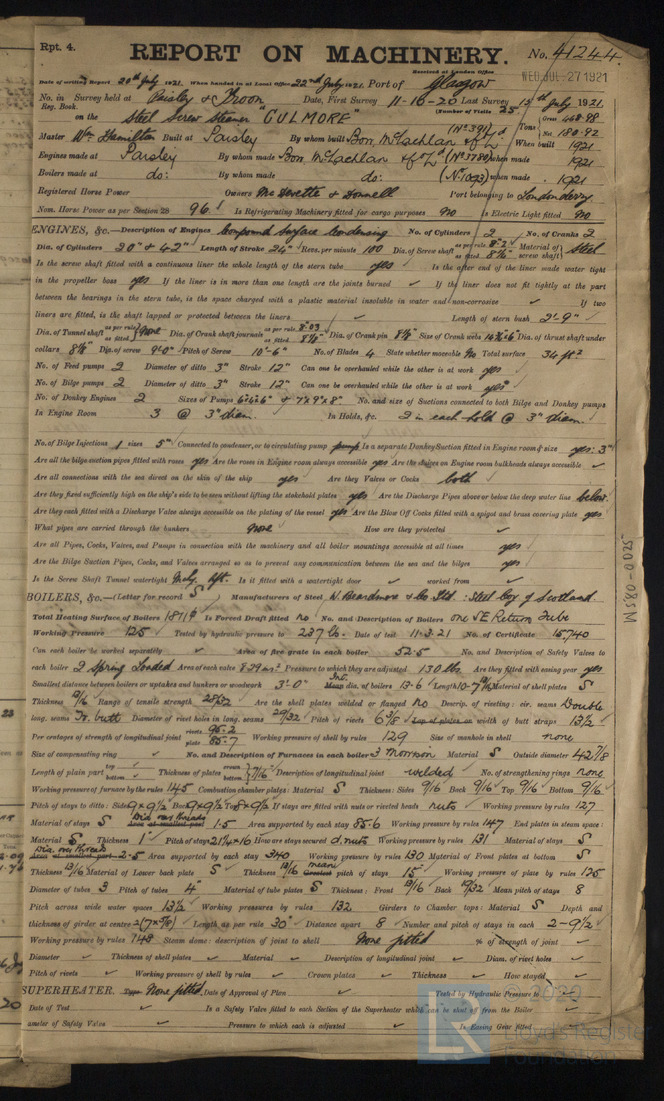 Rpt. 4. REPORT ON MACHINERY. No. 41244
Received at London Office WED. JUL. 27 1921
Date of writing Report 20th July 1921. When handed in at Local Office 22nd July 1921. Port of Glasgow
No. in Survey held at Paisley & Troon Date, First Survey 11-16-20 Last Survey 15th July 1921
Reg. Book. (Number of Visits 25
on the Steel Screw Steamer "CULMORE" Tons Gross 468.98 Net 180.92
Master Wm. Hamilton Built at Paisley By whom built Bow, McLachlan & Co Ld (No 391) When built 1921
Engines made at Paisley By whom made Bow, McLachlan & Co Ld (No 3780) when made 1921
Boilers made at do: By whom made do: (No 1093) when made 1921
Registered Horse Power Owners Port belonging to Londonderry
Nom. Horse Power as per Section 28 96. Is Refrigerating Machinery fitted for cargo purposes no Is Electric Light fitted no
ENGINES, &c.—Description of Engines Compound Surface Condensing No. of Cylinders 2 No. of Cranks 2
Dia. of Cylinders 20" & 42" Length of Stroke 24" Revs. per minute 100 Dia. of Screw shaft as per rule 8.2 as fitted 8½" Material of screw shaft Steel
Is the screw shaft fitted with a continuous liner the whole length of the stern tube yes Is the after end of the liner made water tight
in the propeller boss yes If the liner is in more than one length are the joints burned ✓ If the liner does not fit tightly at the part
between the bearings in the stern tube, is the space charged with a plastic material insoluble in water and non-corrosive ✓ If two
liners are fitted, is the shaft lapped or protected between the liners ✓ Length of stern bush 2'-9"
Dia. of Tunnel shaft as per rule as fitted none Dia. of Crank shaft journals as per rule 8.03 as fitted 8⅛" Dia. of Crank pin 8⅛" Size of Crank webs Dia. of thrust shaft under
collars 8⅛" Dia. of screw 9'-0" Pitch of Screw 10'-6" No. of Blades 4 State whether moveable No Total surface 34 ft²
No. of Feed pumps 2 Diameter of ditto 3" Stroke 12" Can one be overhauled while the other is at work yes
No. of Bilge pumps 2 Diameter of ditto 3" Stroke 12" Can one be overhauled while the other is at work yes
No. of Donkey Engines 2 Sizes of Pumps 6"x6"x6" & 7"x9"x8" No. and size of Suctions connected to both Bilge and Donkey pumps
In Engine Room 3 @ 3" diam. In Holds, &c. 2 in each hold @ 3" diam.
No. of Bilge Injections 1 sizes 5" Connected to condenser, or to circulating pump pump Is a separate Donkey Suction fitted in Engine room & size yes: 3"
Are all the bilge suction pipes fitted with roses yes Are the roses in Engine room always accessible yes Are the sluices on Engine room bulkheads always accessible ✓
Are all connections with the sea direct on the skin of the ship yes Are they Valves or Cocks both
Are they fixed sufficiently high on the ship's side to be seen without lifting the stokehold plates yes Are the Discharge Pipes above or below the deep water line below
Are they each fitted with a Discharge Valve always accessible on the plating of the vessel yes Are the Blow Off Cocks fitted with a spigot and brass covering plate yes
What pipes are carried through the bunkers none How are they protected ✓
Are all Pipes, Cocks, Valves, and Pumps in connection with the machinery and all boiler mountings accessible at all times yes
Are the Bilge Suction Pipes, Cocks and Valves arranged so as to prevent any communication between the sea and the bilges yes
Is the Screw Shaft Tunnel watertight Mchy. Aft. Is it fitted with a watertight door ✓ worked from ✓
BOILERS, &c.—(Letter for record S) Manufacturers of Steel W. Beardmore & Co Ltd: Steel Coy of Scotland
Total Heating Surface of Boilers Is Forced Draft fitted no No. and Description of Boilers one SE Return Tube
Working Pressure 125 Tested by hydraulic pressure to 237 lb. Date of test 11.3.21 No. of Certificate 15740
Can each boiler be worked separately ✓ Area of fire grate in each boiler 52.5 No. and Description of Safety Valves to
each boiler 2 Spring Loaded Area of each valve 8.29 in² Pressure to which they are adjusted 130 lbs. Are they fitted with easing gear yes
Smallest distance between boilers or uptakes and bunkers or woodwork 3'-0" Int. Mean dia. of boilers 13'-6 Length Material of shell plates S
Thickness Range of tensile strength 28/32 Are the shell plates welded or flanged no Descrip. of riveting: cir. seams Double
long. seams Tr. butt Diameter of rivet holes in long. seams 29/32 Pitch of rivets 6⅜ Lap of plates or width of butt straps 13½
Per centages of strength of longitudinal joint rivets 95.2 plate 85.7 Working pressure of shell by rules 129 Size of manhole in shell none
Size of compensating ring ✓ No. and Description of Furnaces in each boiler 3 Morrison Material S Outside diameter 42⅞
Length of plain part top bottom Thickness of plates crown bottom 7/16 Description of longitudinal joint welded No. of strengthening rings none
Working pressure of furnace by the rules 145 Combustion chamber plates: Material S Thickness: Sides 9/16 Back 9/16 Top 9/16 Bottom 9/16
Pitch of stays to ditto: Sides 9x9½ Back 9x9½ Top 8x9½ If stays are fitted with nuts or riveted heads nuts Working pressure by rules 127
Material of stays S Dia. over threads Area at smallest part 1.5 Area supported by each stay 85.6 Working pressure by rules 147 End plates in steam space:
Material S Thickness 1" Pitch of stays 21¼x16 How are stays secured d. nuts Working pressure by rules 131 Material of stays S
Dia. over threads Area at smallest part 2.5 Area supported by each stay 340 Working pressure by rules 130 Material of Front plates at bottom S
Thickness 13/16 Material of Lower back plate S Thickness 13/16 mean Greatest pitch of stays 15" Working pressure of plate by rules 125
Diameter of tubes 3 Pitch of tubes 4" Material of tube plates S Thickness: Front 13/16 Back 19/32 Mean pitch of stays 8
Pitch across wide water spaces 13½ Working pressures by rules 132 Girders to Chamber tops: Material S Depth and
thickness of girder at centre Length as per rule 30" Distance apart 8 Number and pitch of stays in each 2-9½
Working pressure by rules 148 Steam dome: description of joint to shell None fitted % of strength of joint ✓
Diameter ✓ Thickness of shell plates ✓ Material ✓ Description of longitudinal joint ✓ Diam. of rivet holes ✓
Pitch of rivets ✓ Working pressure of shell by rules ✓ Crown plates ✓ Thickness ✓ How stayed ✓
SUPERHEATER. Type None fitted. Date of Approval of Plan ✓ Tested by Hydraulic Pressure to
Date of Test ✓ Is a Safety Valve fitted to each Section of the Superheater which can be shut off from the Boiler ✓
ameter of Safety Valve ✓ Pressure to which each is adjusted ✓ Is Easing Gear fitted ✓
W580-0025
LR
© 2020
Lloyd's Register
Foundation